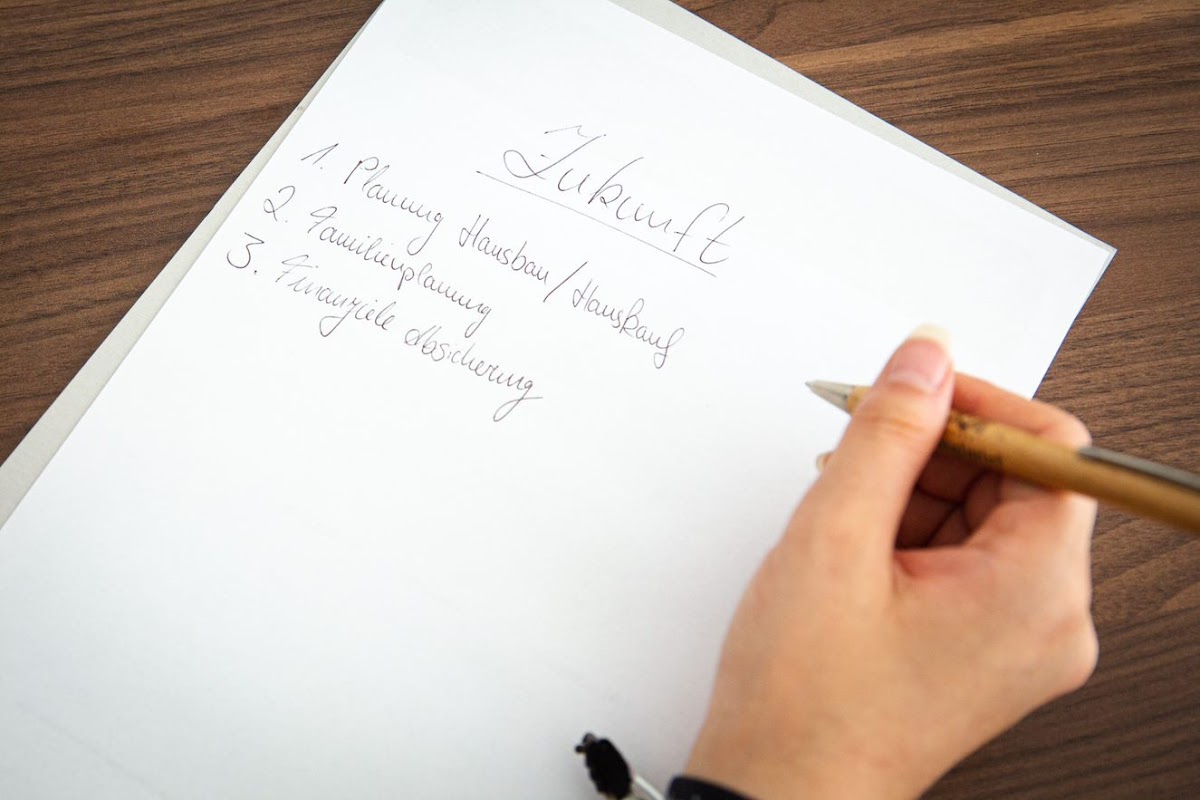 Zukunft
1. Planung Hausbau/Hauskauf
2. Familienplanung
3. Finanziele Absicherung